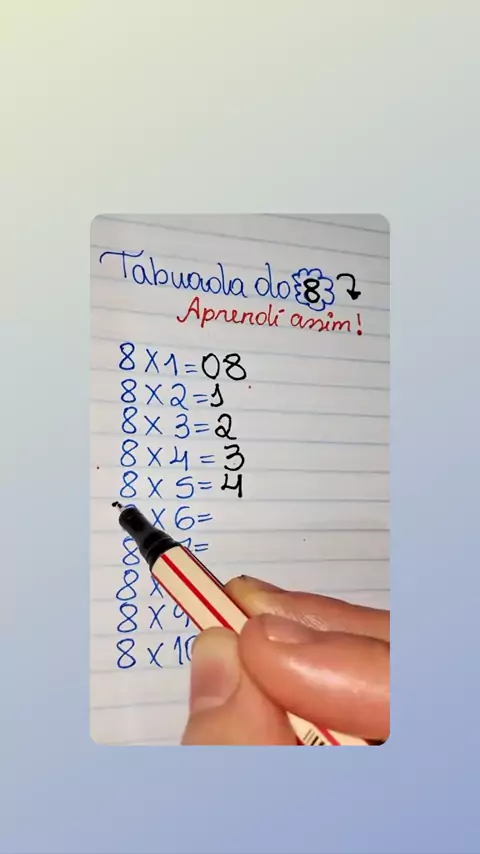 Tabuada do 8
Aprendi assim!
8 X 1 = 08
8 X 2 = 1
8 X 3 = 2
8 X 4 = 3
8 X 5 = 4
X 6 =
8 =
8 X
8 X 9
8 X 10